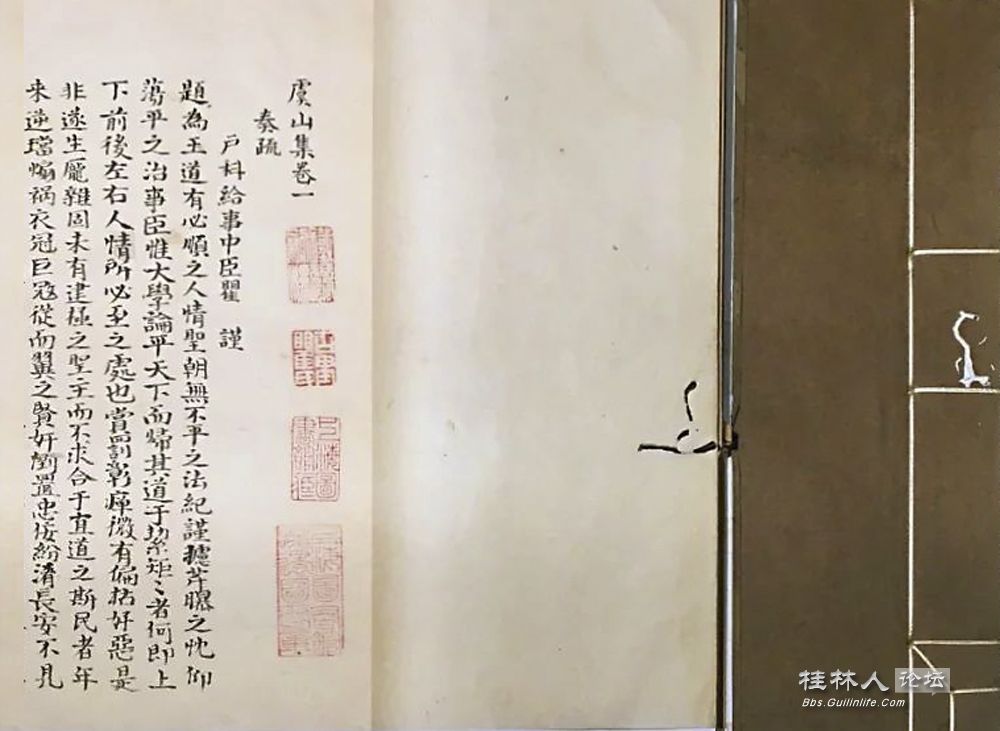 虞山集卷一
奏疏
户科給事中臣瞿 謹
題為王道有必順之人情聖朝無不平之法紀謹攄芹曝之忱仰
蕩平之治事臣惟大學論平天下而歸其道于絜矩〻者何即上
下前後左右人情所必至之處也賞罰彰癉微有偏枯好惡是
非遂生厖雜固未有建極之聖主而不求合于直道之斯民者年
來逆璫煽禍衣冠巨寇從而翼之賢奸倒置忠佞紛淆長安不凡
桂林人论坛
Bbs.Guilinlife.Com